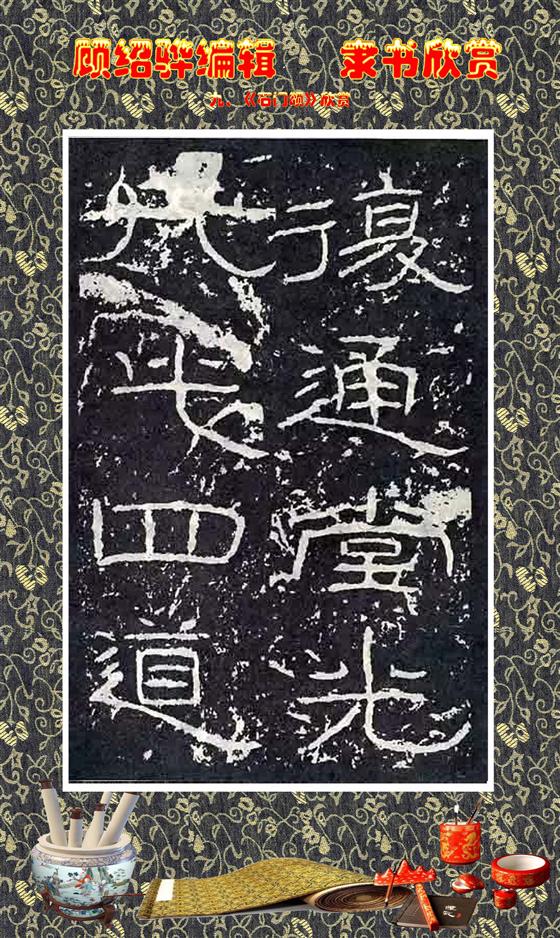 顾绍骅编辑 隶书欣赏
九、《石门颂》欣赏
復通堂光
凡此四道